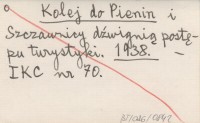 Kolej do Pienin i
Szczawnicy dźwignią postę-
pu turystyki. 1938. –
IKC nr 70.